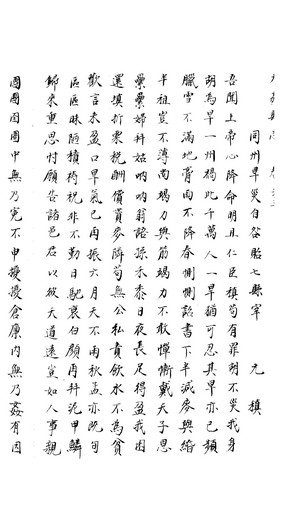 同州旱災自咎貽七縣宰　元稹
吾聞上帝心降命明且仁臣稹苟有罪胡不災我身
胡為旱一州禍此千萬人一旱猶可忍其旱亦已頻
臘雪不滿地膏雨不降春惻惻詔書下半減麥與緡
半租豈不薄尚竭力與筋竭力不敢憚慚戴天子恩
纍纍婦拜姑吶吶翁語孫禾黍日夜長足得盈我囷
還填折粟稅酬償貰麥鄰苟無公私責飲水不為貧
歡言未盈口旱氣已再振六月天不雨秋孟亦既旬
區區昧陋積禱祝非不勤日馳衰白顏再拜泥甲鱗
歸來重思忖願告諸邑君以彼天道遠豈如人事親
團團囹圄中無乃冤不申擾擾倉廩內無乃姦有因